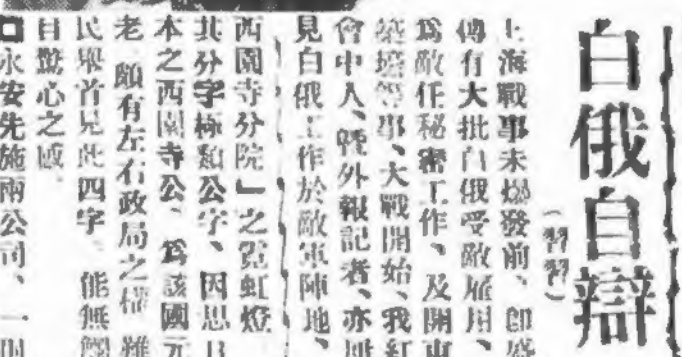 白俄自辯
（習習）
上海戰事未爆發前、即盛
傳有大批白俄受敵雇用、
爲敵任秘密工作、及開
築壕等事、大戰開始、我紅
會中人、曁外報記者、亦
見白俄工作於敵軍陣地、
西園寺分院」之霓虹燈
其分字極類公字、因思日
本之西園寺公、爲該國元
老、頗有左右政局之權、雖
民舉首見此四字、能無
目驚心之感、
口永安先施兩公司、一